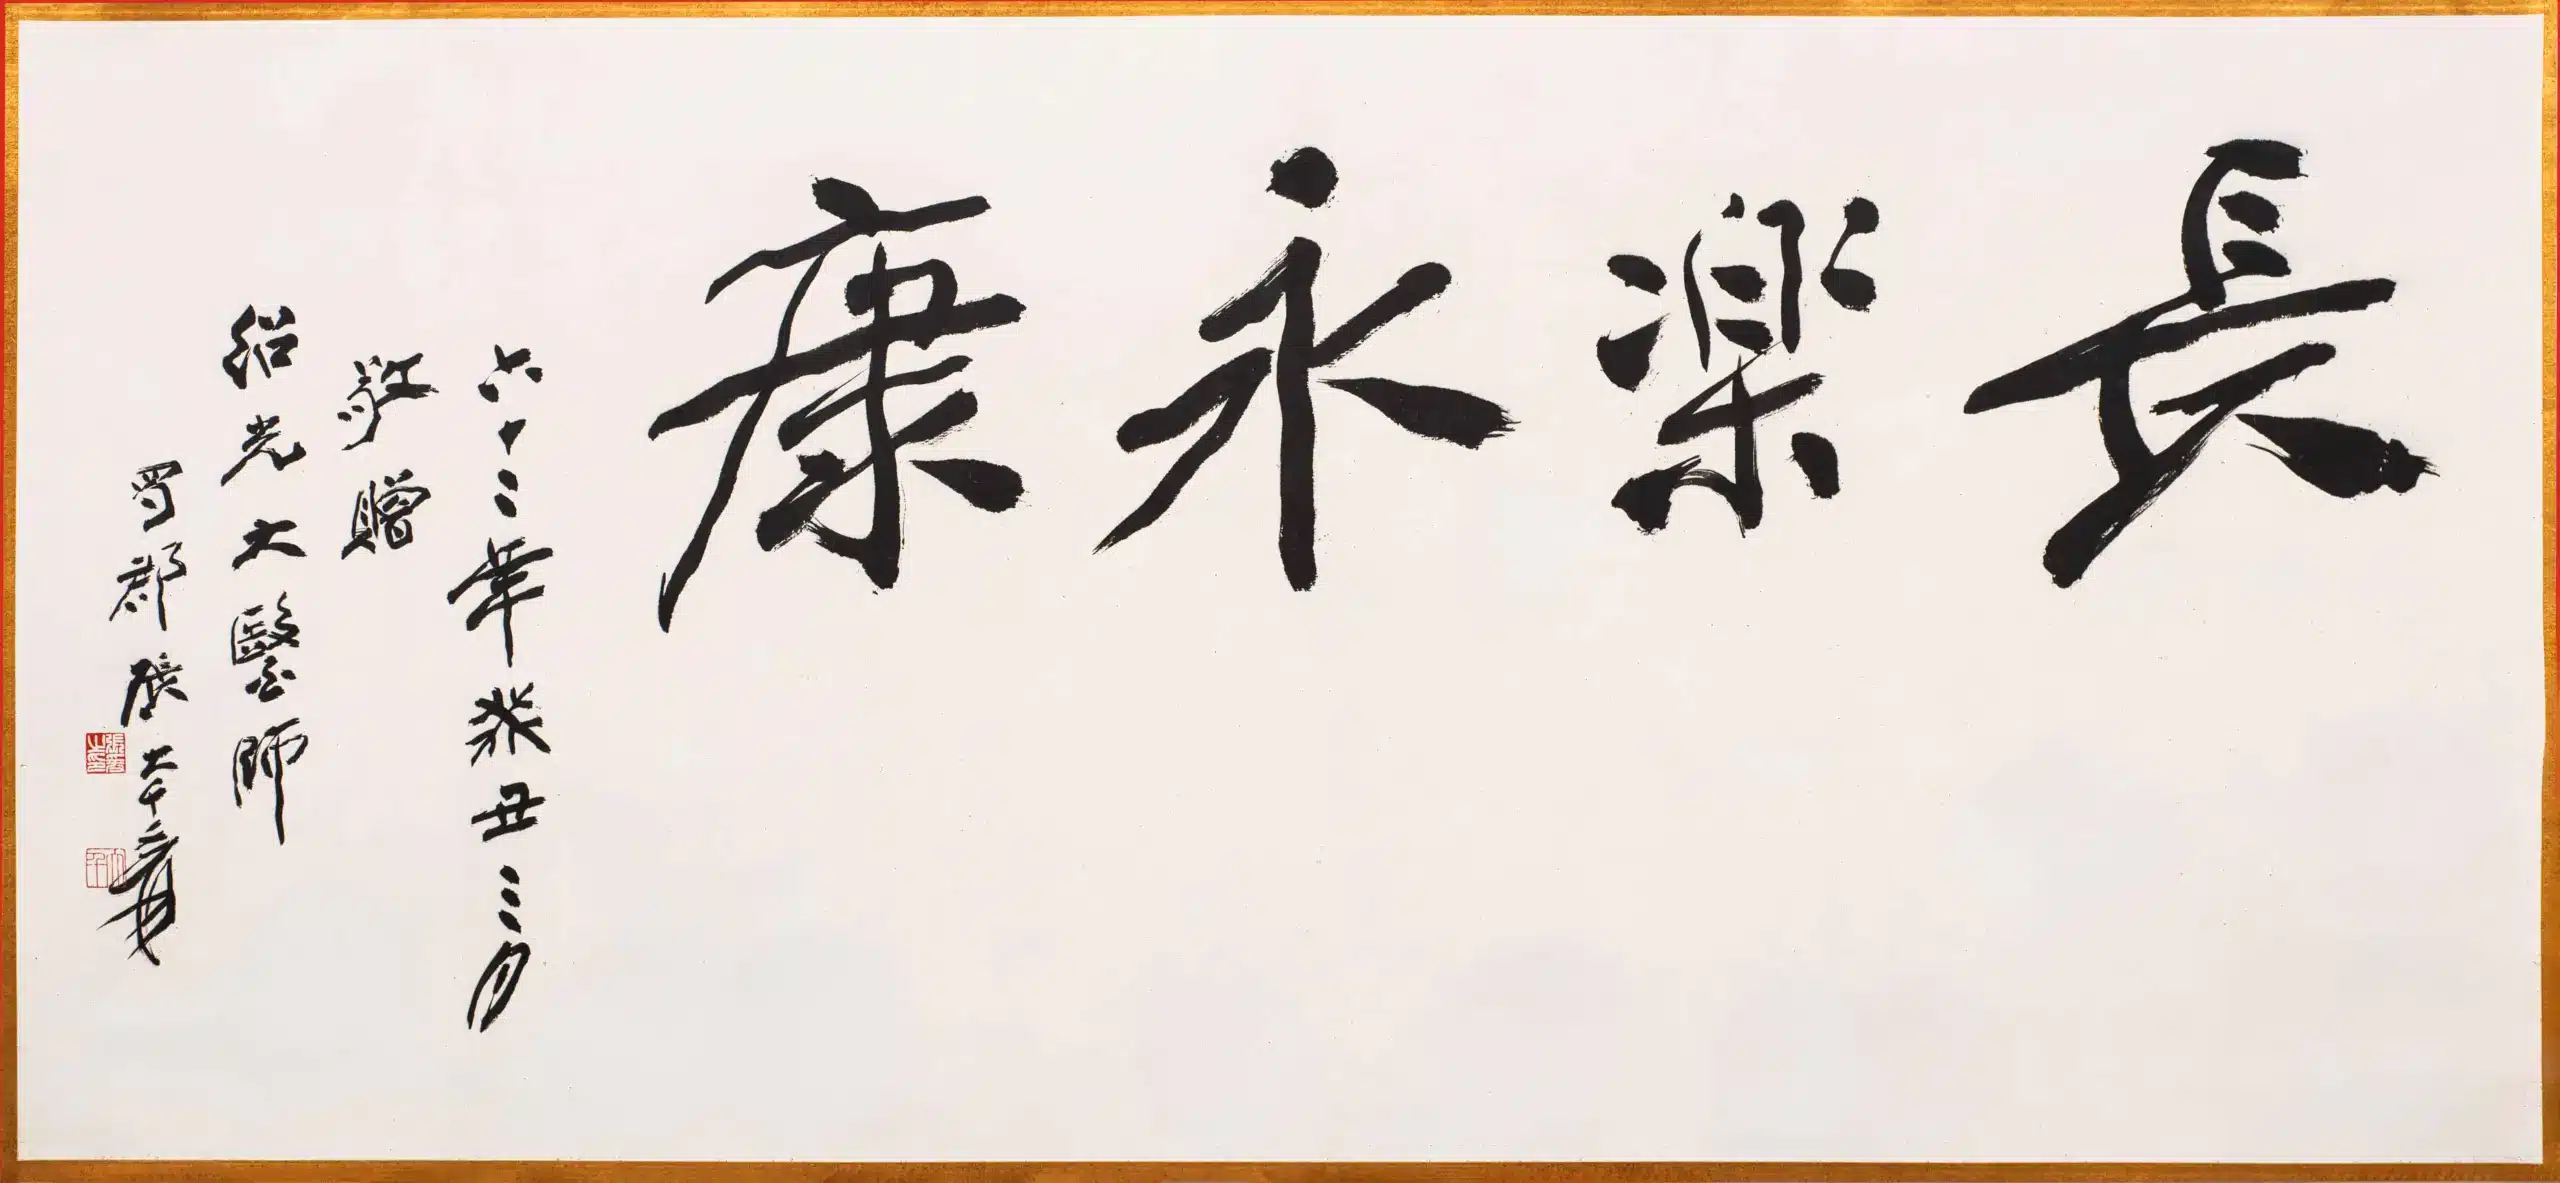 長樂永康
六十二年癸丑三月
敬贈
紹光大醫師
蜀郡張大千爰
張爰之印
大千